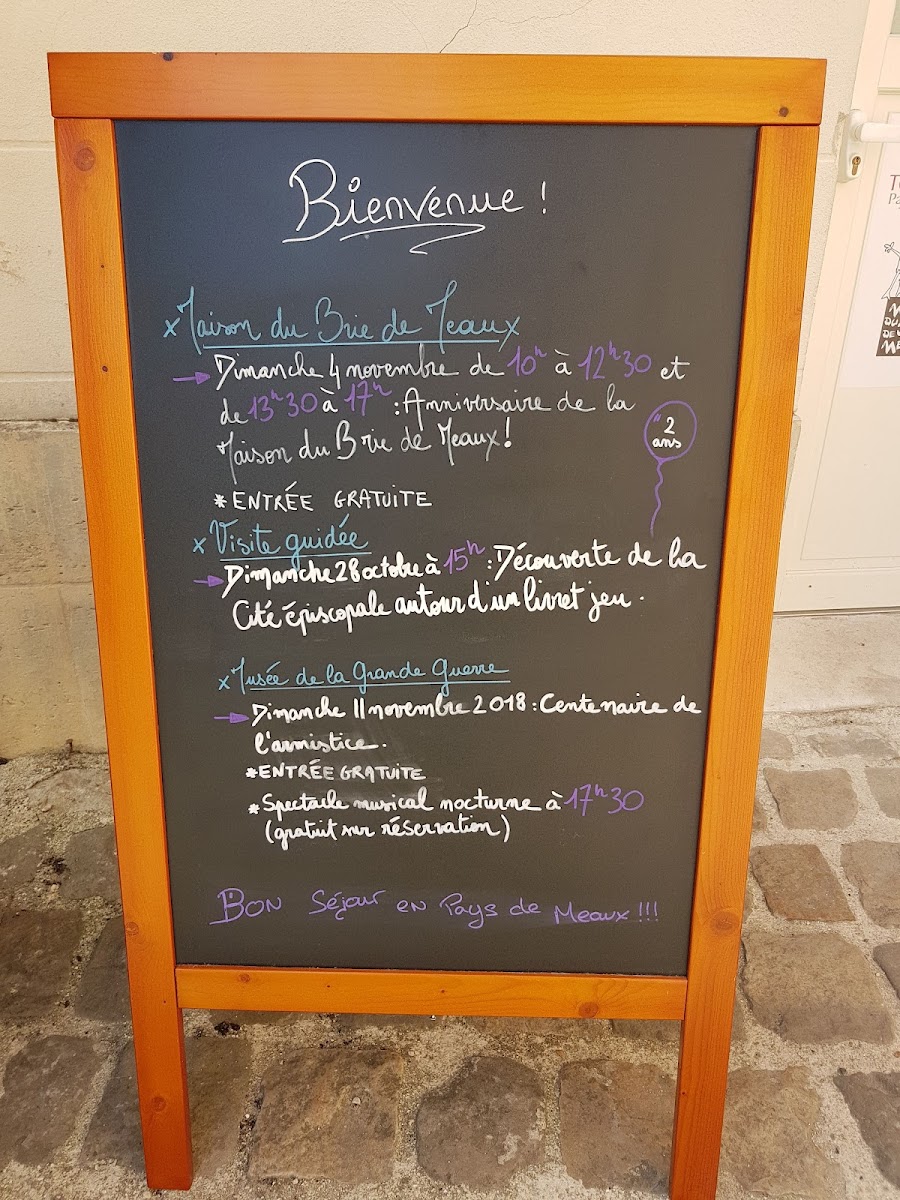 Bienvenue !
x Maison du Brie de Meaux
→ Dimanche 4 novembre de 10h à 12h30 et
de 13h30 à 17h : Anniversaire de la
Maison du Brie de Meaux !
2
ans
*ENTRÉE GRATUITE
x Visite guidée
→ Dimanche 28 octobre à 15h : Découverte de la
Cité épiscopale autour d'un livret jeu.
x Musée de la Grande Guerre
→ Dimanche 11 novembre 2018 : Centenaire de
l'armistice.
*ENTRÉE GRATUITE
* Spectacle musical nocturne à 17h30
(gratuit sur réservation)
BON Séjour en Pays de Meaux !!!